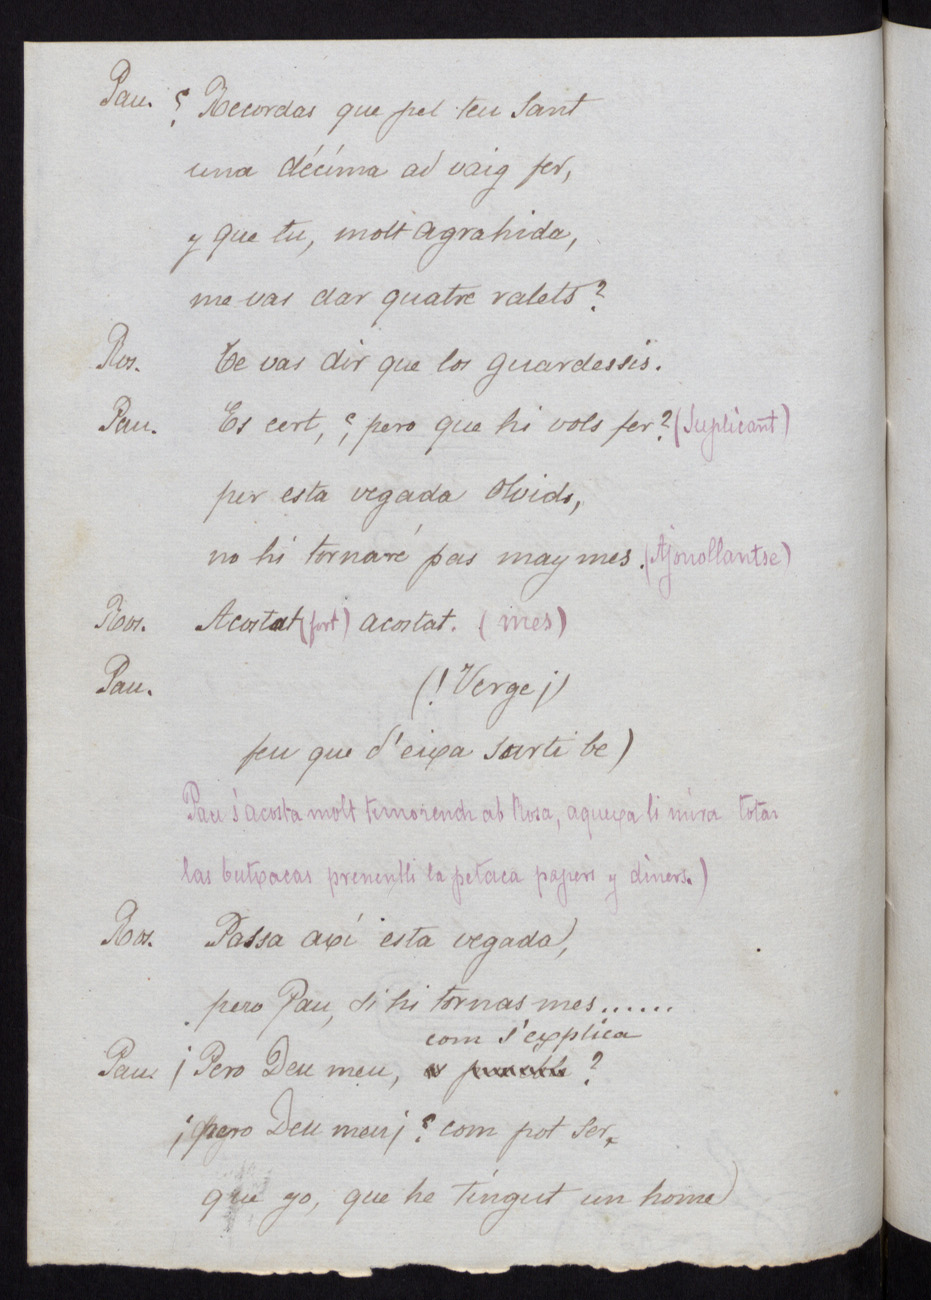 Pau. ¿ Recordas que pel teu Sant
una décima et vaig fer,
y que tu, molt agrahida,
me vas dar quatre ralets?
Ros. Te vas dir que los guardessis.
Pau. Es cert, ¿ pero que hi vols fer? (Suplicant)
per esta vegada olvido,
no hi tornaré pas may mes. (Ajonollantse)
Ros. Acostat (fort) acostat. (mes)
Pau. (! Verge ¡)
feu que d'eixa surti be)
Pau s'acosta molt temorench ab Rosa, aqueixa li mira totas
las butxacas prenentli la petaca papers y diners.)
Ros. Passa axí esta vegada,
pero Pau, si hi tornas mes......
com s'explica
Pau. ¡ Pero Deu meu, ?
¡ pero Deu meu ¡ ¿ com pot ser,
que yo, que he tingut un home